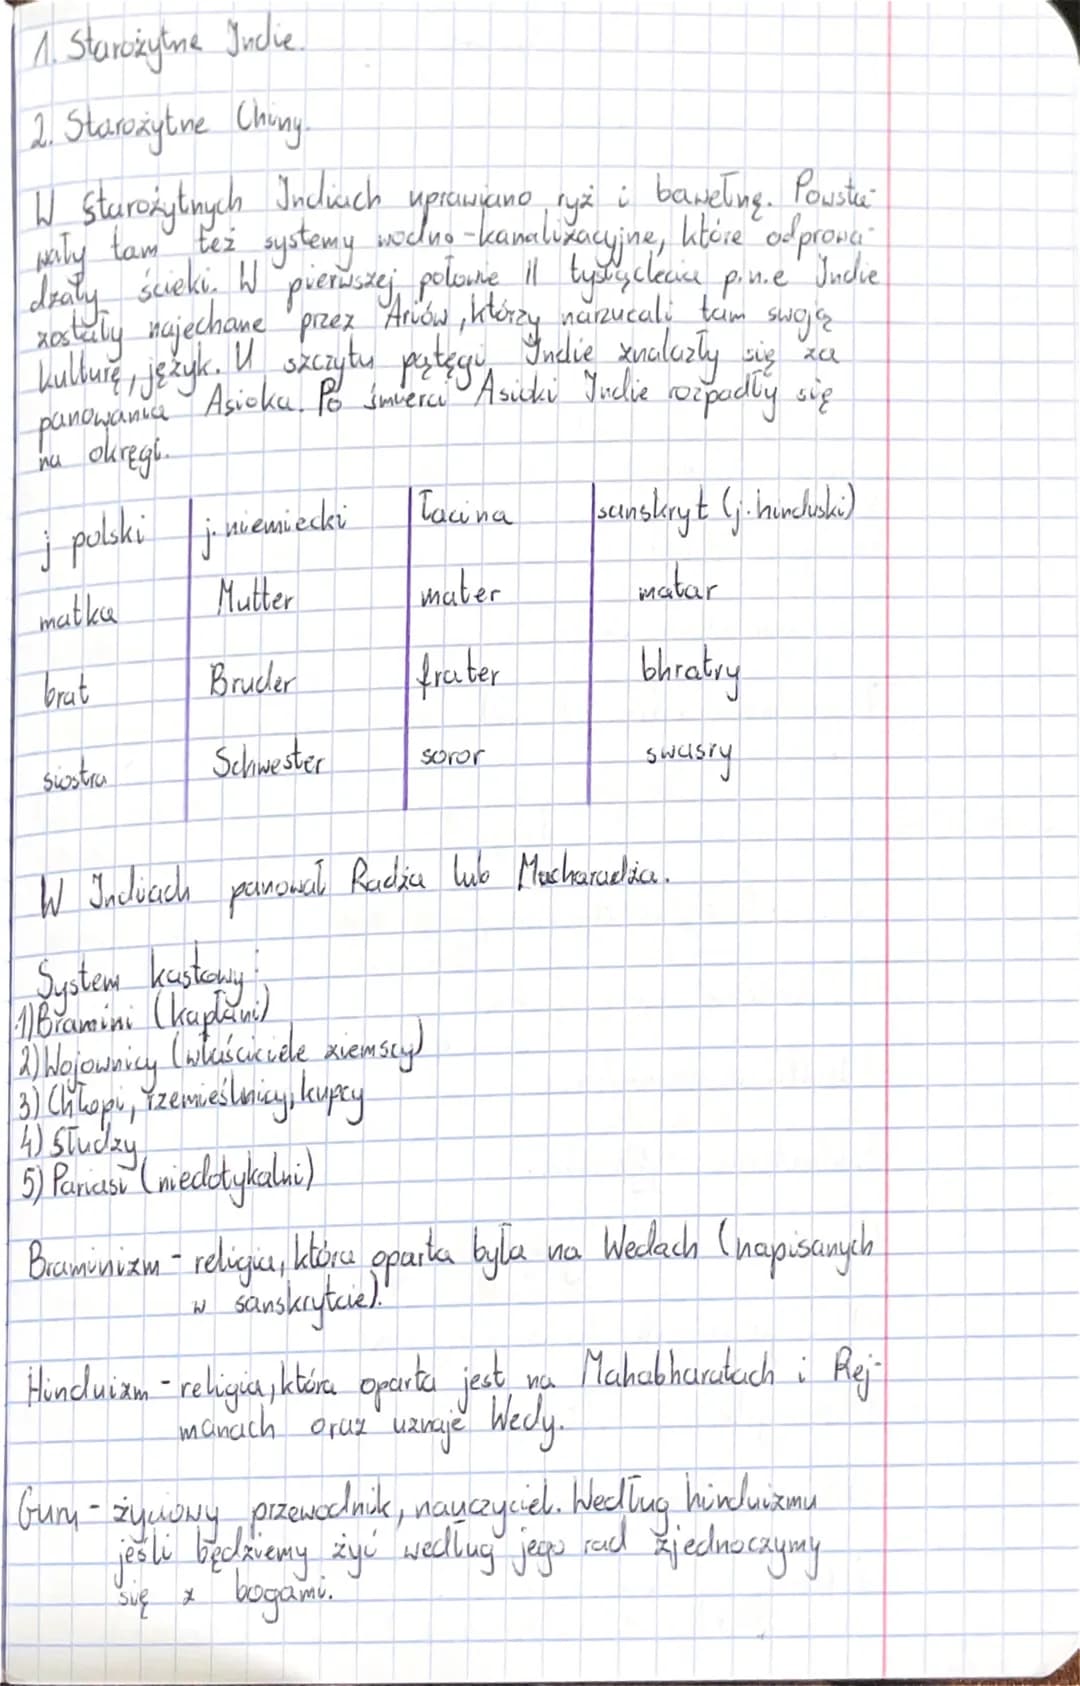 1. Starożytne Indie.
2. Starożytne Chiny.
W Starożytnych Indiach uprawiano ryż i bawełnę. Powsta-
wały tam też systemy wodno-kanalizacyjne, które odprowa-
dzały ścieki. W pierwszej połowie II tysiąclecia p.n.e Indie
zostały najechane przez Ariów, którzy narzucali tam swoją
kulturę, język. U szczytu potęgi Indie znalazły się za
panowania Asioka. Po śmierci Asioki Indie rozpadły się
na okręgi.
j polski | j. niemiecki | łacina | sanskryt (j. hinduski)
matka Mutter mater matar
brat Bruder frater bhratry
siostra Schwester soror swasry
W Indiach panował Radża lub Macharadża.
System kastowy:
1) Bramini (kapłani)
2) Wojownicy (właściciele ziemscy)
3) Chłopi, rzemieślnicy, kupcy
4) Słudzy
5) Pariasi (niedotykalni)
Braminizm - religia, która oparta była na Wedach (napisanych
w sanskrytcie).
Hinduizm - religia, która oparta jest na Mahabharatach i Rej-
manach oraz uznaje Wedy.
Guru - życiowy przewodnik, nauczyciel. Według hinduizmu
jeśli będziemy żyć według jego rad zjednoczymy
się z bogami.